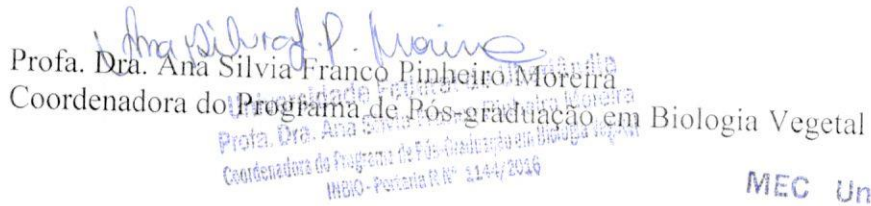 Profa. Dra. Ana Silvia Franco Pinheiro Moreira
Coordenadora do Programa de Pós-graduação em Biologia Vegetal
Universidade Federal de Uberlândia
Profa. Dra. Ana Silvia Franco Pinheiro Moreira
Coordenadora do Programa de Pós-Graduação em Biologia Vegetal
INBIO - Portaria R Nº 1144/2016
MEC Un